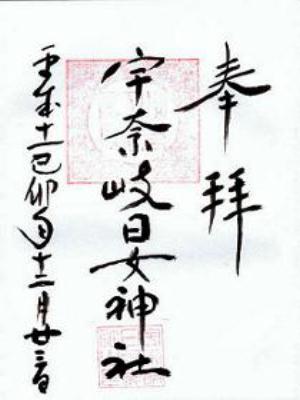 奉拝
宇奈岐日女神社
平成十一己卯自十二月廿三日